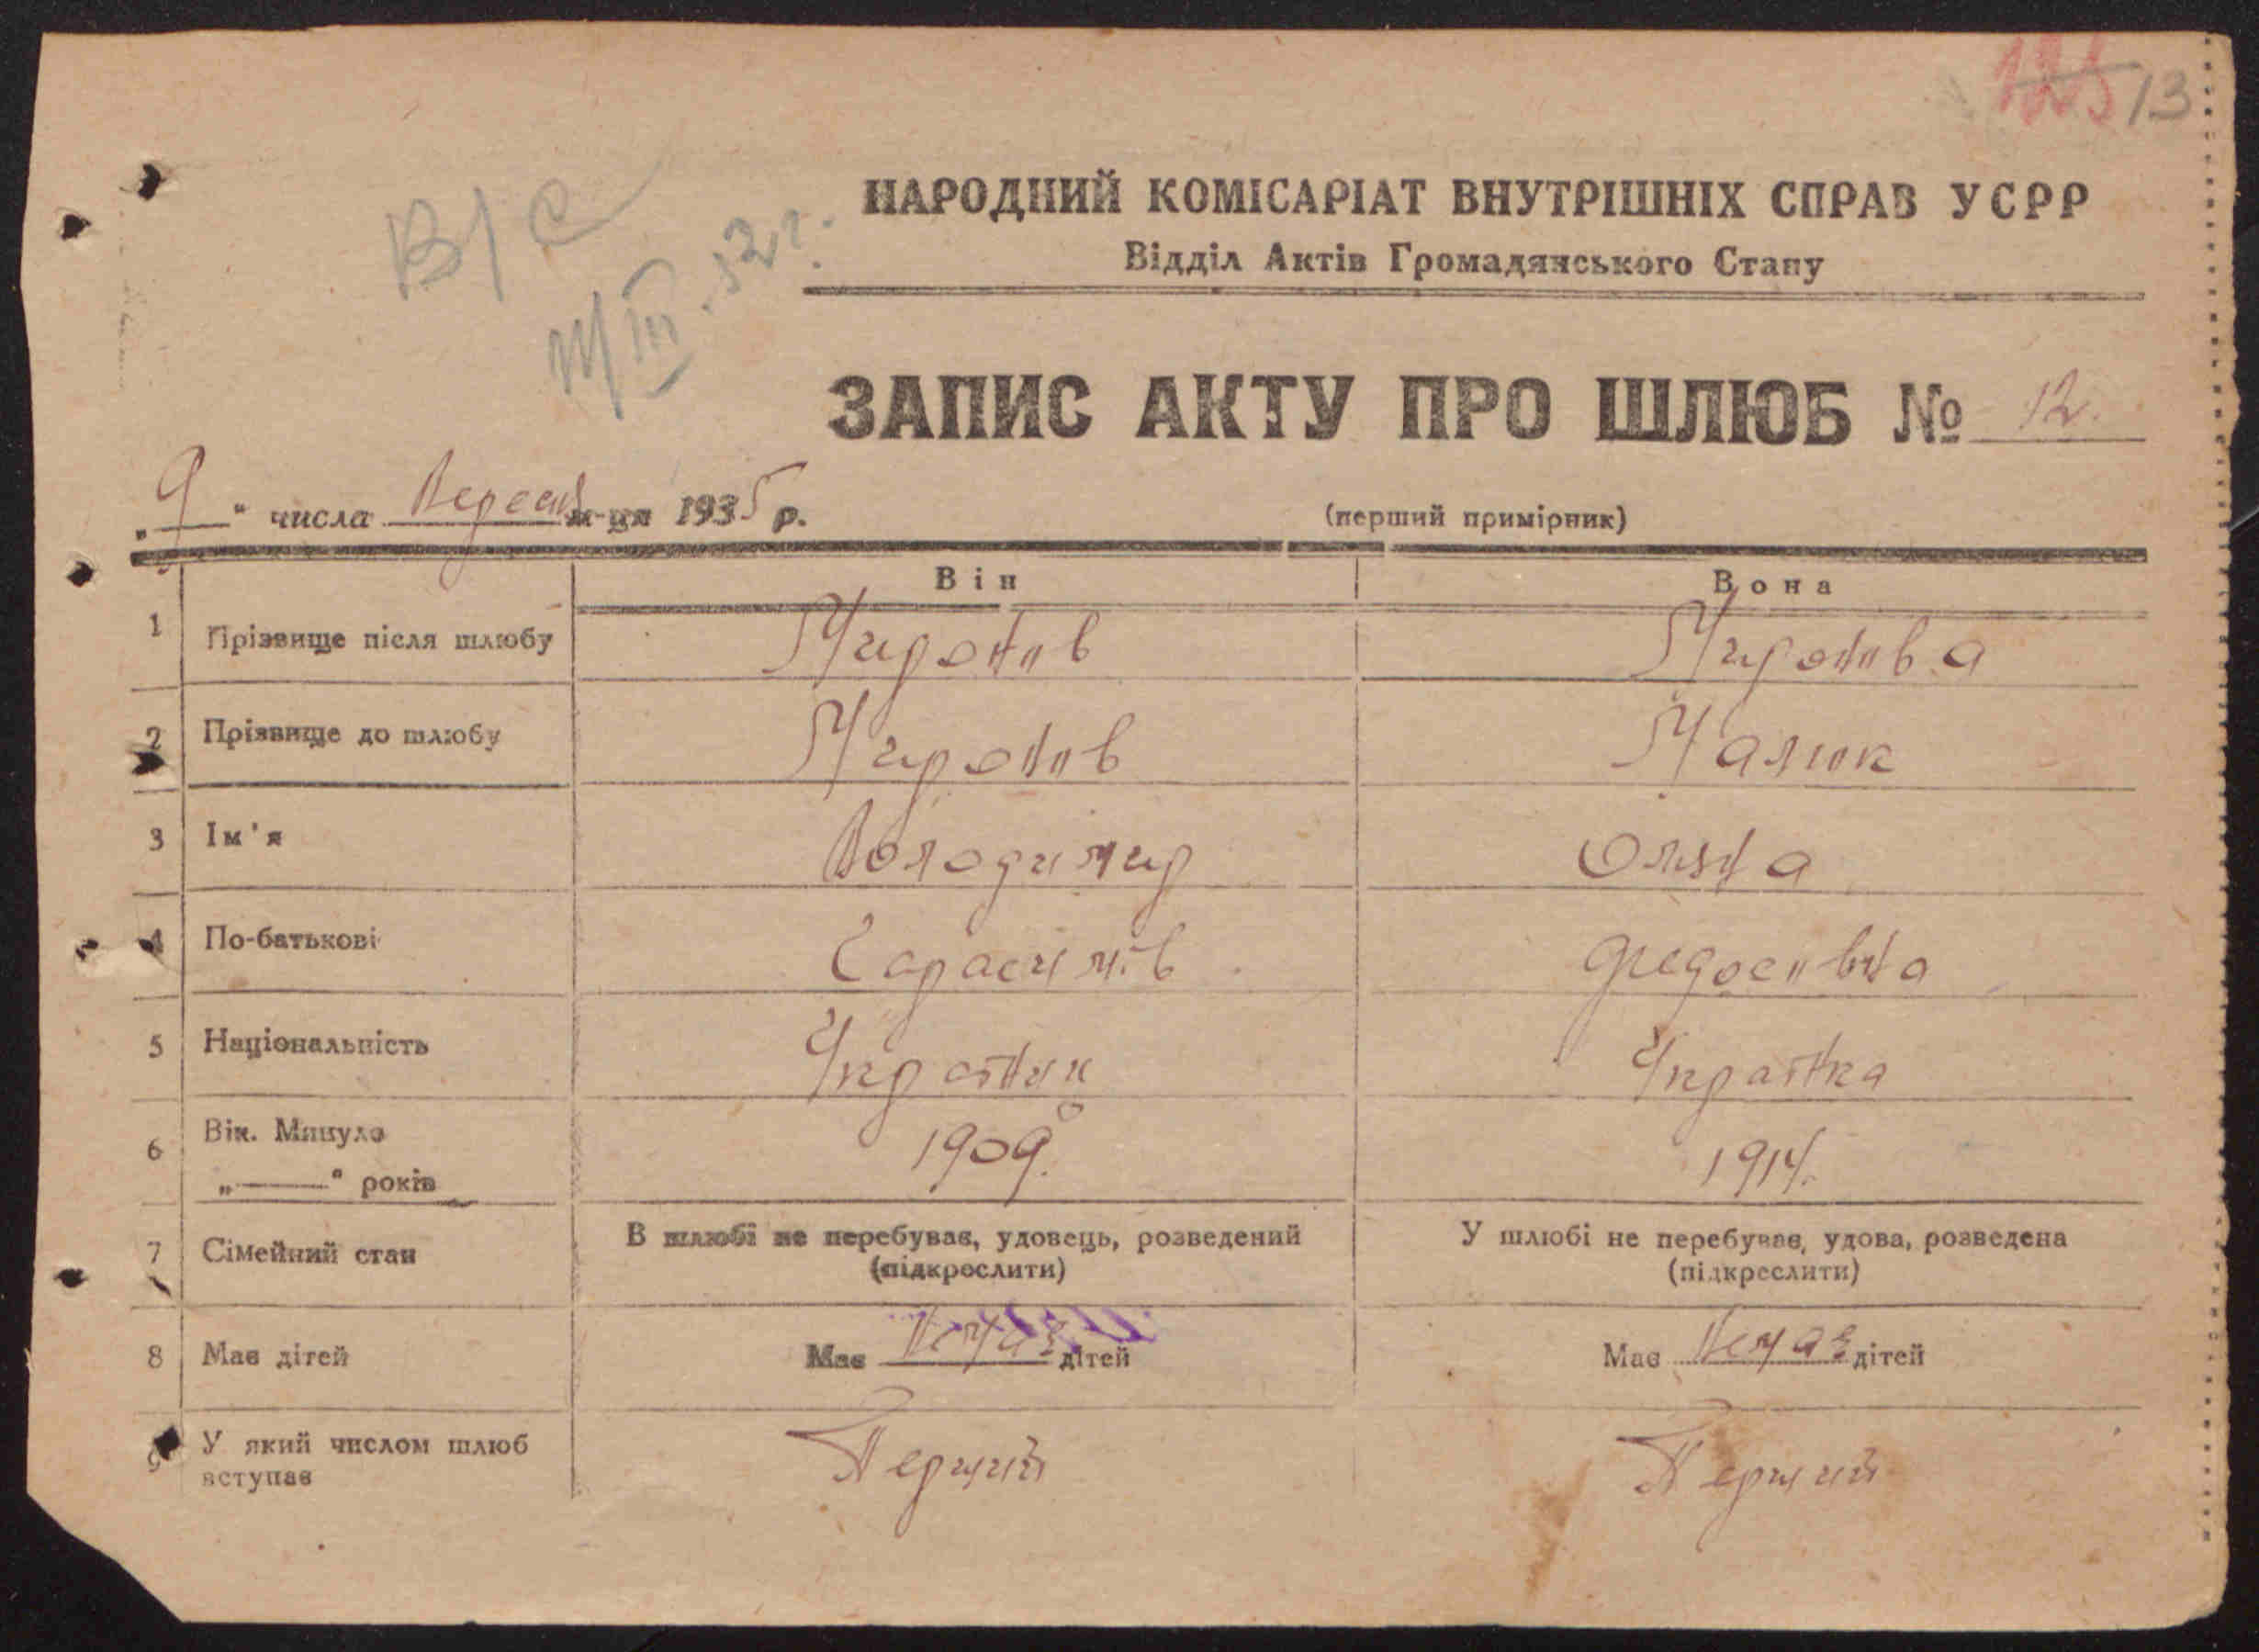 125 13
В/С
III . 52 г.
НАРОДНИЙ КОМІСАРІАТ ВНУТРІШНІХ СПРАВ УСРР
Відділ Актів Громадянського Стану
ЗАПИС АКТУ ПРО ШЛЮБ № 12.
„9" числа Вересня м-ця 1935 р.
(перший примірник)
Він Вона
1 Прізвище після шлюбу Миронів Миронів а
2 Прізвище до шлюбу Миронів Малик
3 Ім'я Володимир Ольга
4 По-батькові Гарасимів Федосівна
5 Національність Українц Українка
6 Вік. Минуло 1909. 1914.
„——" років
7 Сімейний стан В шлюбі не перебував, удовець, розведений У шлюбі не перебував, удова, розведена
(підкреслити) (підкреслити)
8 Має дітей Має Немає дітей Має Немає дітей
9 У який числом шлюб Перший Перший
вступає